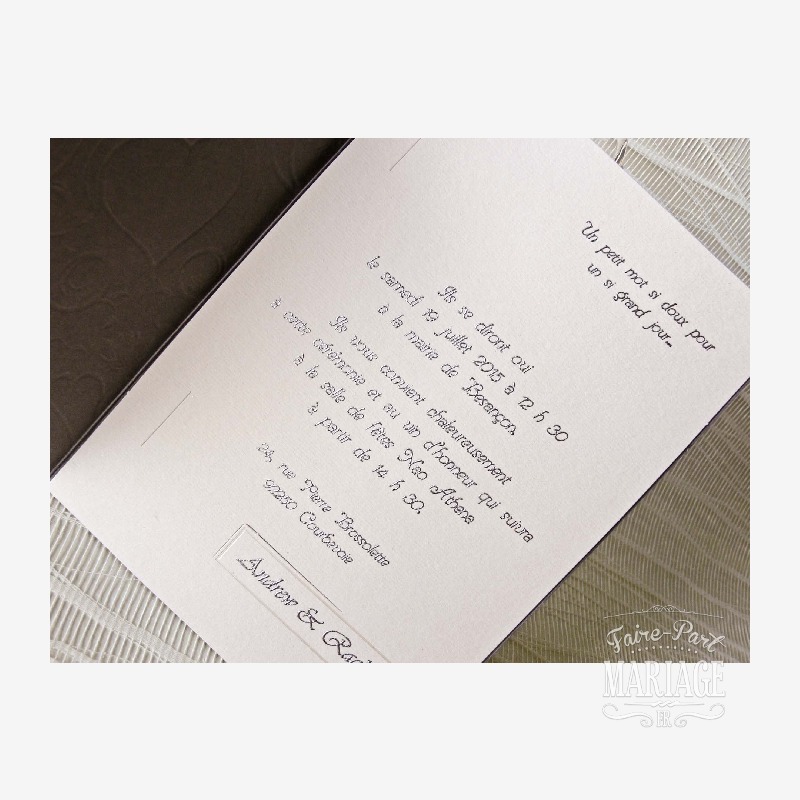 Un petit mot si doux pour
un si grand jour...
Ils se diront oui
le samedi 19 juillet 2015 à 12 h 30
à la mairie de Besançon,
Ils vous convient chaleureusement
à cette cérémonie et au vin d'honneur qui suivra
à la salle de fêtes Neo Athena
à partir de 14 h 30.
24, rue Pierre Brossolette
92250 Courbevoie
Andrew & Rac
Faire-Part
MARIAGE
.FR